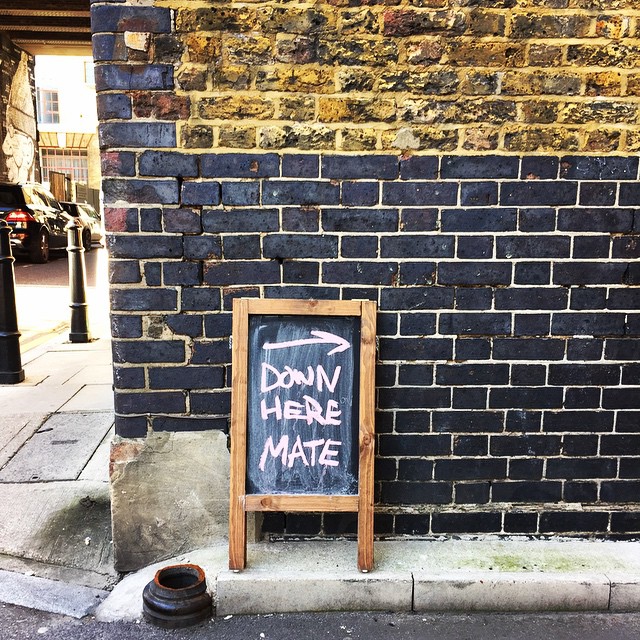 DOWN
HERE
MATE